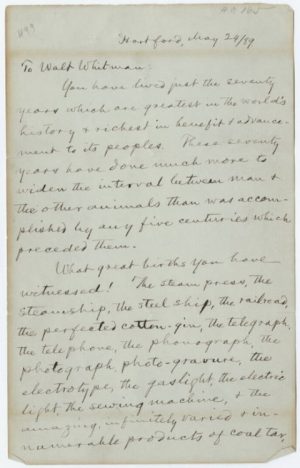 Hartford, May 24/89
To Walt Whitman:
You have lived just the seventy
years which are greatest in the world's
history & richest in benefit & advance-
ment to its peoples. These seventy
years have done much more to
widen the interval between man &
the other animals than was accom-
plished by any five centuries which
preceded them.
What great births you have
witnessed! The steam press, the
steamship, the steel ship, the railroad,
the perfected cotton-gin, the telegraph,
the telephone, the phonograph, the
photograph, photo-gravure, the
electrotype, the gaslight, the electric
light, the sewing machine, & the
amazing, infinitely varied & in-
numerable products of coal tar,